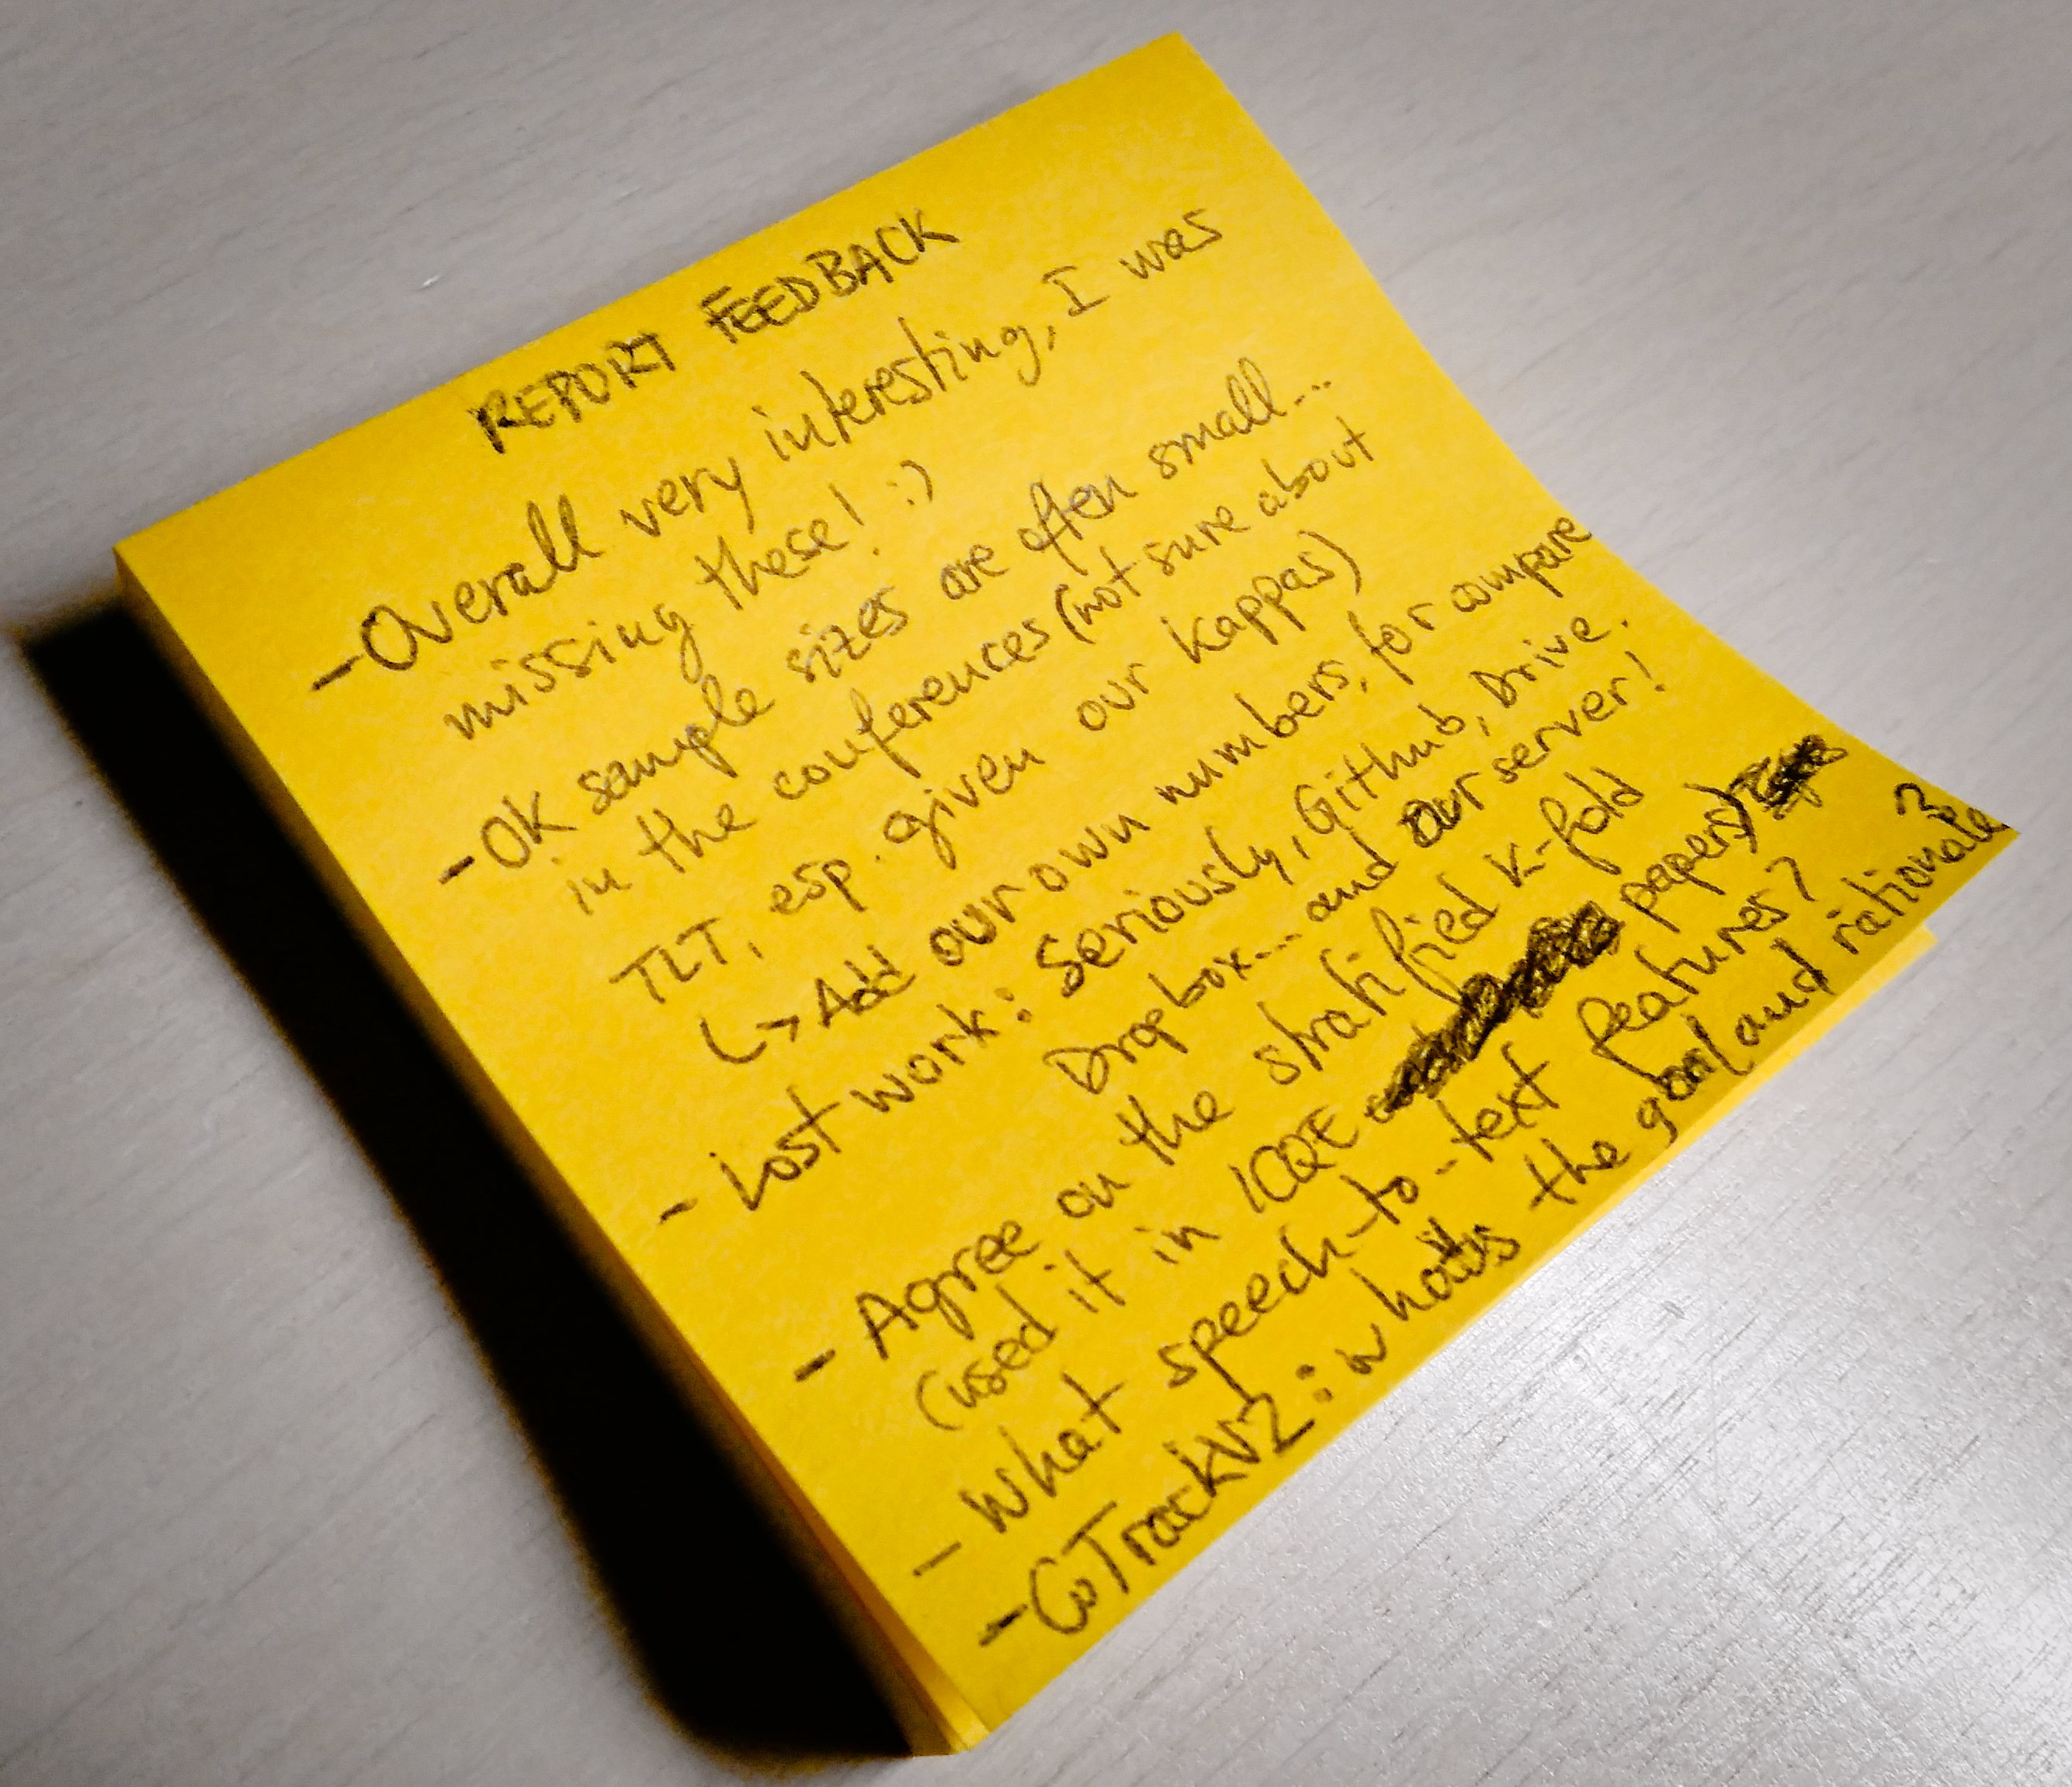 REPORT FEEDBACK
- Overall very interesting, I was
missing these! :)
- OK sample sizes are often small...
in the conferences (not sure about
TLT, esp. given our kappas)
↳ Add our own numbers, for compare
- Lost work: Seriously, Github, Drive,
Dropbox... and our server!
- Agree on the stratified k-fold
(used it in ICQE papers)
- What speech-to-text features?
- CoTrackV2: what's the goal and rationale?